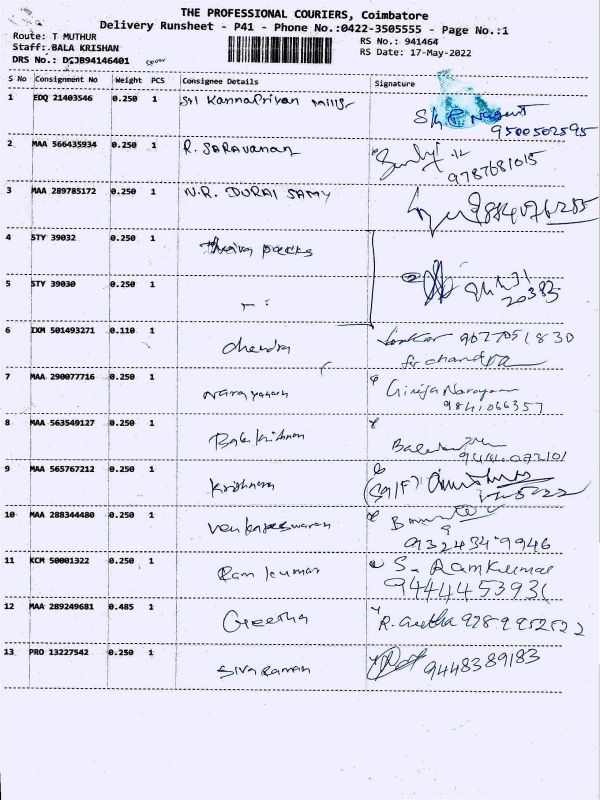 THE PROFESSIONAL COURIERS, Coimbatore
Delivery Runsheet - P41 - Phone No.:0422-3505555 - Page No.:1
Route: T MUTHUR
RS No.: 941464
Staff: BALA KRISHAN
RS Date: 17-May-2022
DRS No.: DCJB94146401
S No Consignment No Weight PCS Consignee Details Signature
1 EDQ 21403546 0.250 1 Sri KannaPriyan Mills
9500502595
2 MAA 566435934 0.250 1 R. SARAVANAN
9787681015
3 MAA 289785172 0.250 1 N.R. DURAI SAMY
9884076285
4 STY 39032 0.250 1 packs
5 STY 39030 0.250 1
20383
6 IXM 501493271 0.110 1 Chandra
9627051830
for chandra
7 MAA 290077716 0.250 1 Narayanan Girija Narayan
9841066357
8 MAA 563549127 0.250 1 Bala Krishnan
9444072101
9 MAA 565767212 0.250 1 Krishnan
10 MAA 288344480 0.250 1 Venkateswaran
9132434 9946
11 KCM 50001322 0.250 1 Ram Kumar S. RamKumar
9444453931
12 MAA 289249681 0.485 1 Geetha R. Geetha 9289952522
13 PRO 13227542 0.250 1 Sivaraman 9448389183